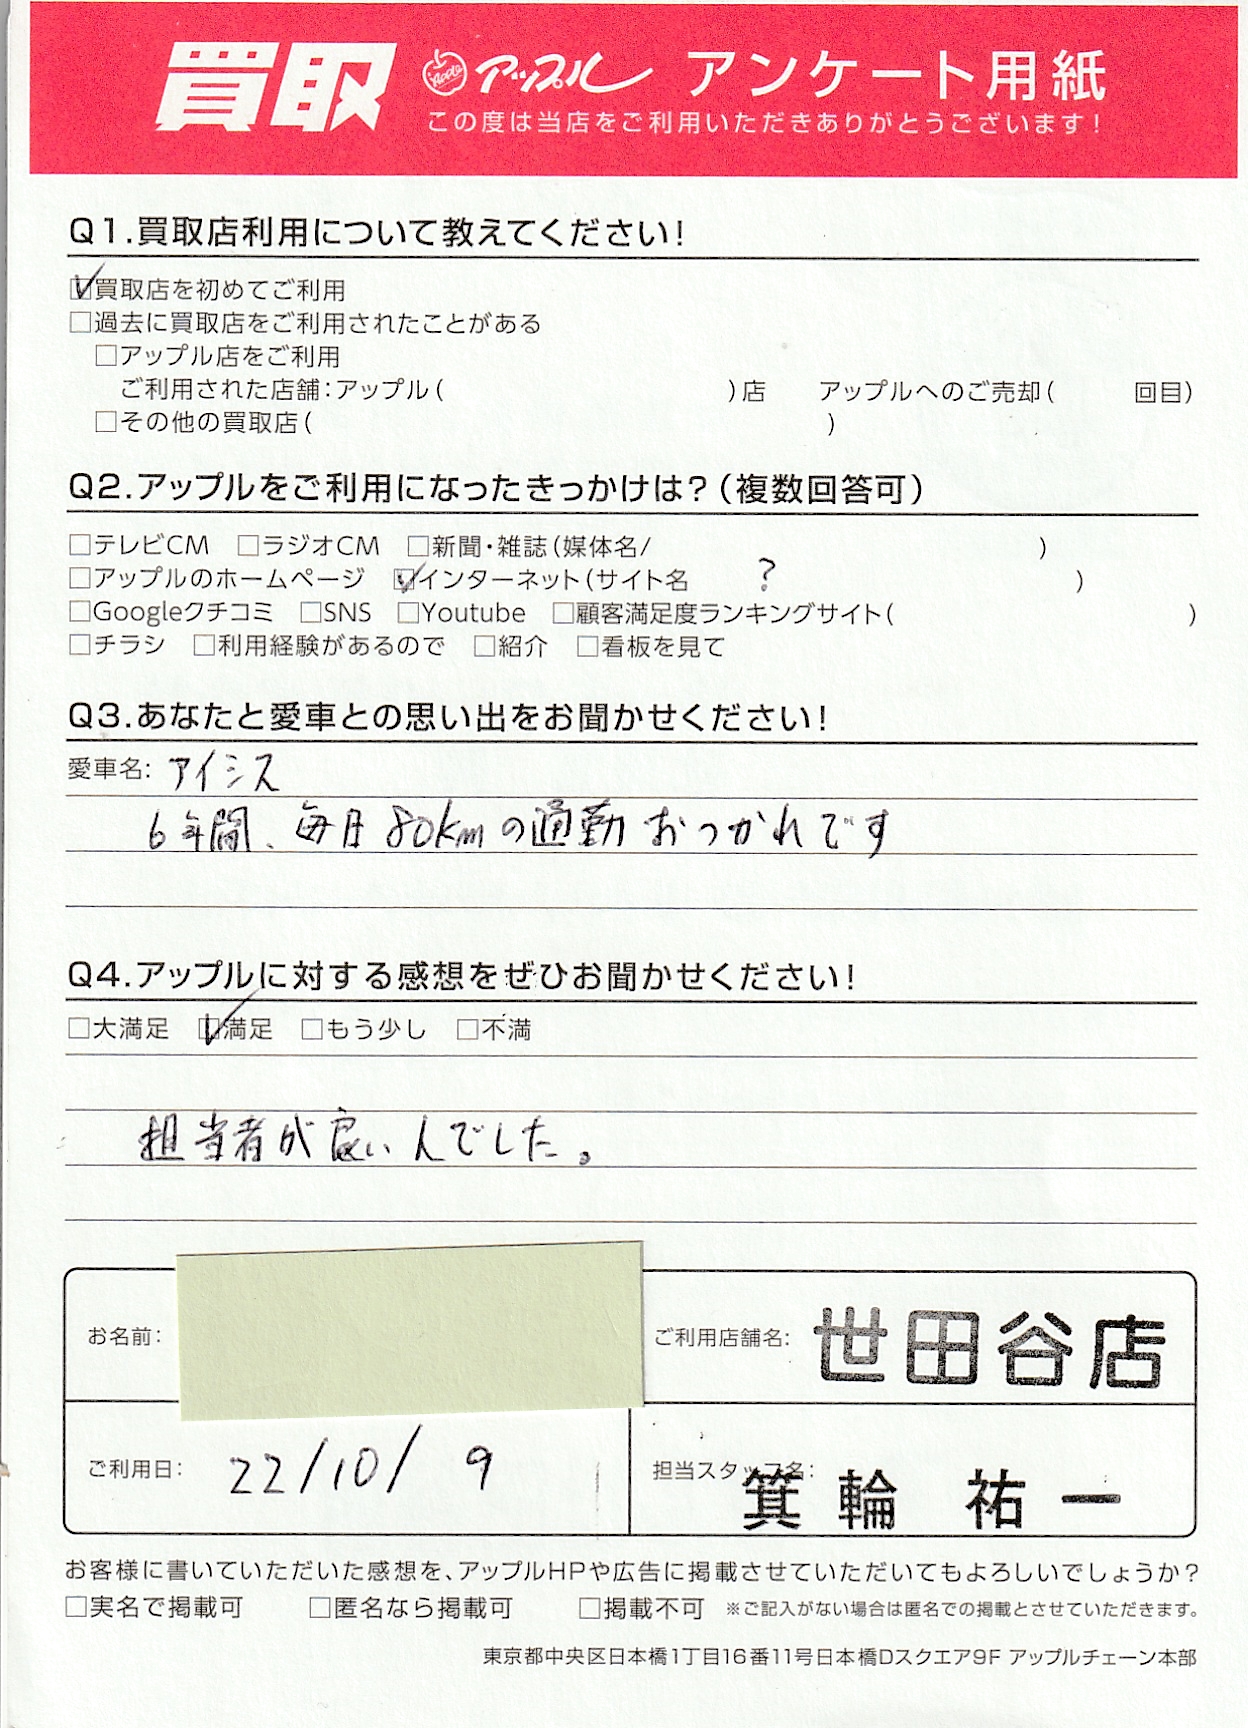 買取 Apple アップル アンケート用紙
この度は当店をご利用いただきありがとうございます!
Q1.買取店利用について教えてください!
☑買取店を初めてご利用
□過去に買取店をご利用されたことがある
□アップル店をご利用
ご利用された店舗:アップル( )店 アップルへのご売却( 回目)
□その他の買取店( )
Q2.アップルをご利用になったきっかけは?(複数回答可)
□テレビCM □ラジオCM □新聞・雑誌(媒体名/ )
□アップルのホームページ ☑インターネット(サイト名 ? )
□Googleクチコミ □SNS □Youtube □顧客満足度ランキングサイト( )
□チラシ □利用経験があるので □紹介 □看板を見て
Q3.あなたと愛車との思い出をお聞かせください!
愛車名: アイシス
6年間、毎日80kmの通勤おつかれです
Q4.アップルに対する感想をぜひお聞かせください!
□大満足 ☑満足 □もう少し □不満
担当者が良い人でした。
お名前: ご利用店舗名: 世田谷店
ご利用日: 22/10/9 担当スタッフ名: 箕輪 祐一
お客様に書いていただいた感想を、アップルHPや広告に掲載させていただいてもよろしいでしょうか?
□実名で掲載可 □匿名なら掲載可 □掲載不可 ※ご記入がない場合は匿名での掲載とさせていただきます。
東京都中央区日本橋1丁目16番11号日本橋Dスクエア9F アップルチェーン本部